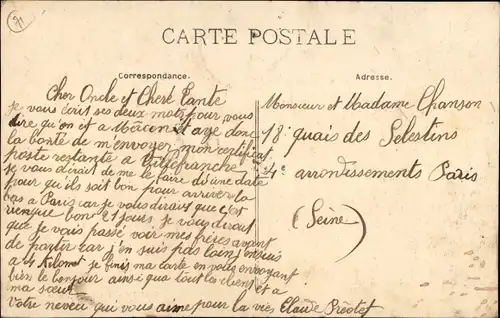 71
CARTE POSTALE
Correspondance.
Adresse.
Cher Oncle et Chere Tante
je vous ecris ses deux mots pour vous
dire qu'on et a Mâcon et aye donc
la bonté de m'envoyer mon certificat
poste restante a Villefranche
je vous dirait de me le faire d'une date
pour qu'ils soit bon pour arriver la
bas a Paris car je vous dirais que c'est
bon 21 jours je vous dirait
que je vais passé voir mes frères avant
de partir car j'en suis pas loin j'en suis
a 4 Kilomet je finis ma carte en vous envoyant
bien le bonjour ainsi qua tout les clients et a
ma sœur
Votre neveu qui vous aime pour la vie Claude
Monsieur et Madame Chanson
18 quais des Selestins
4e arrondissements Paris
(Seine)